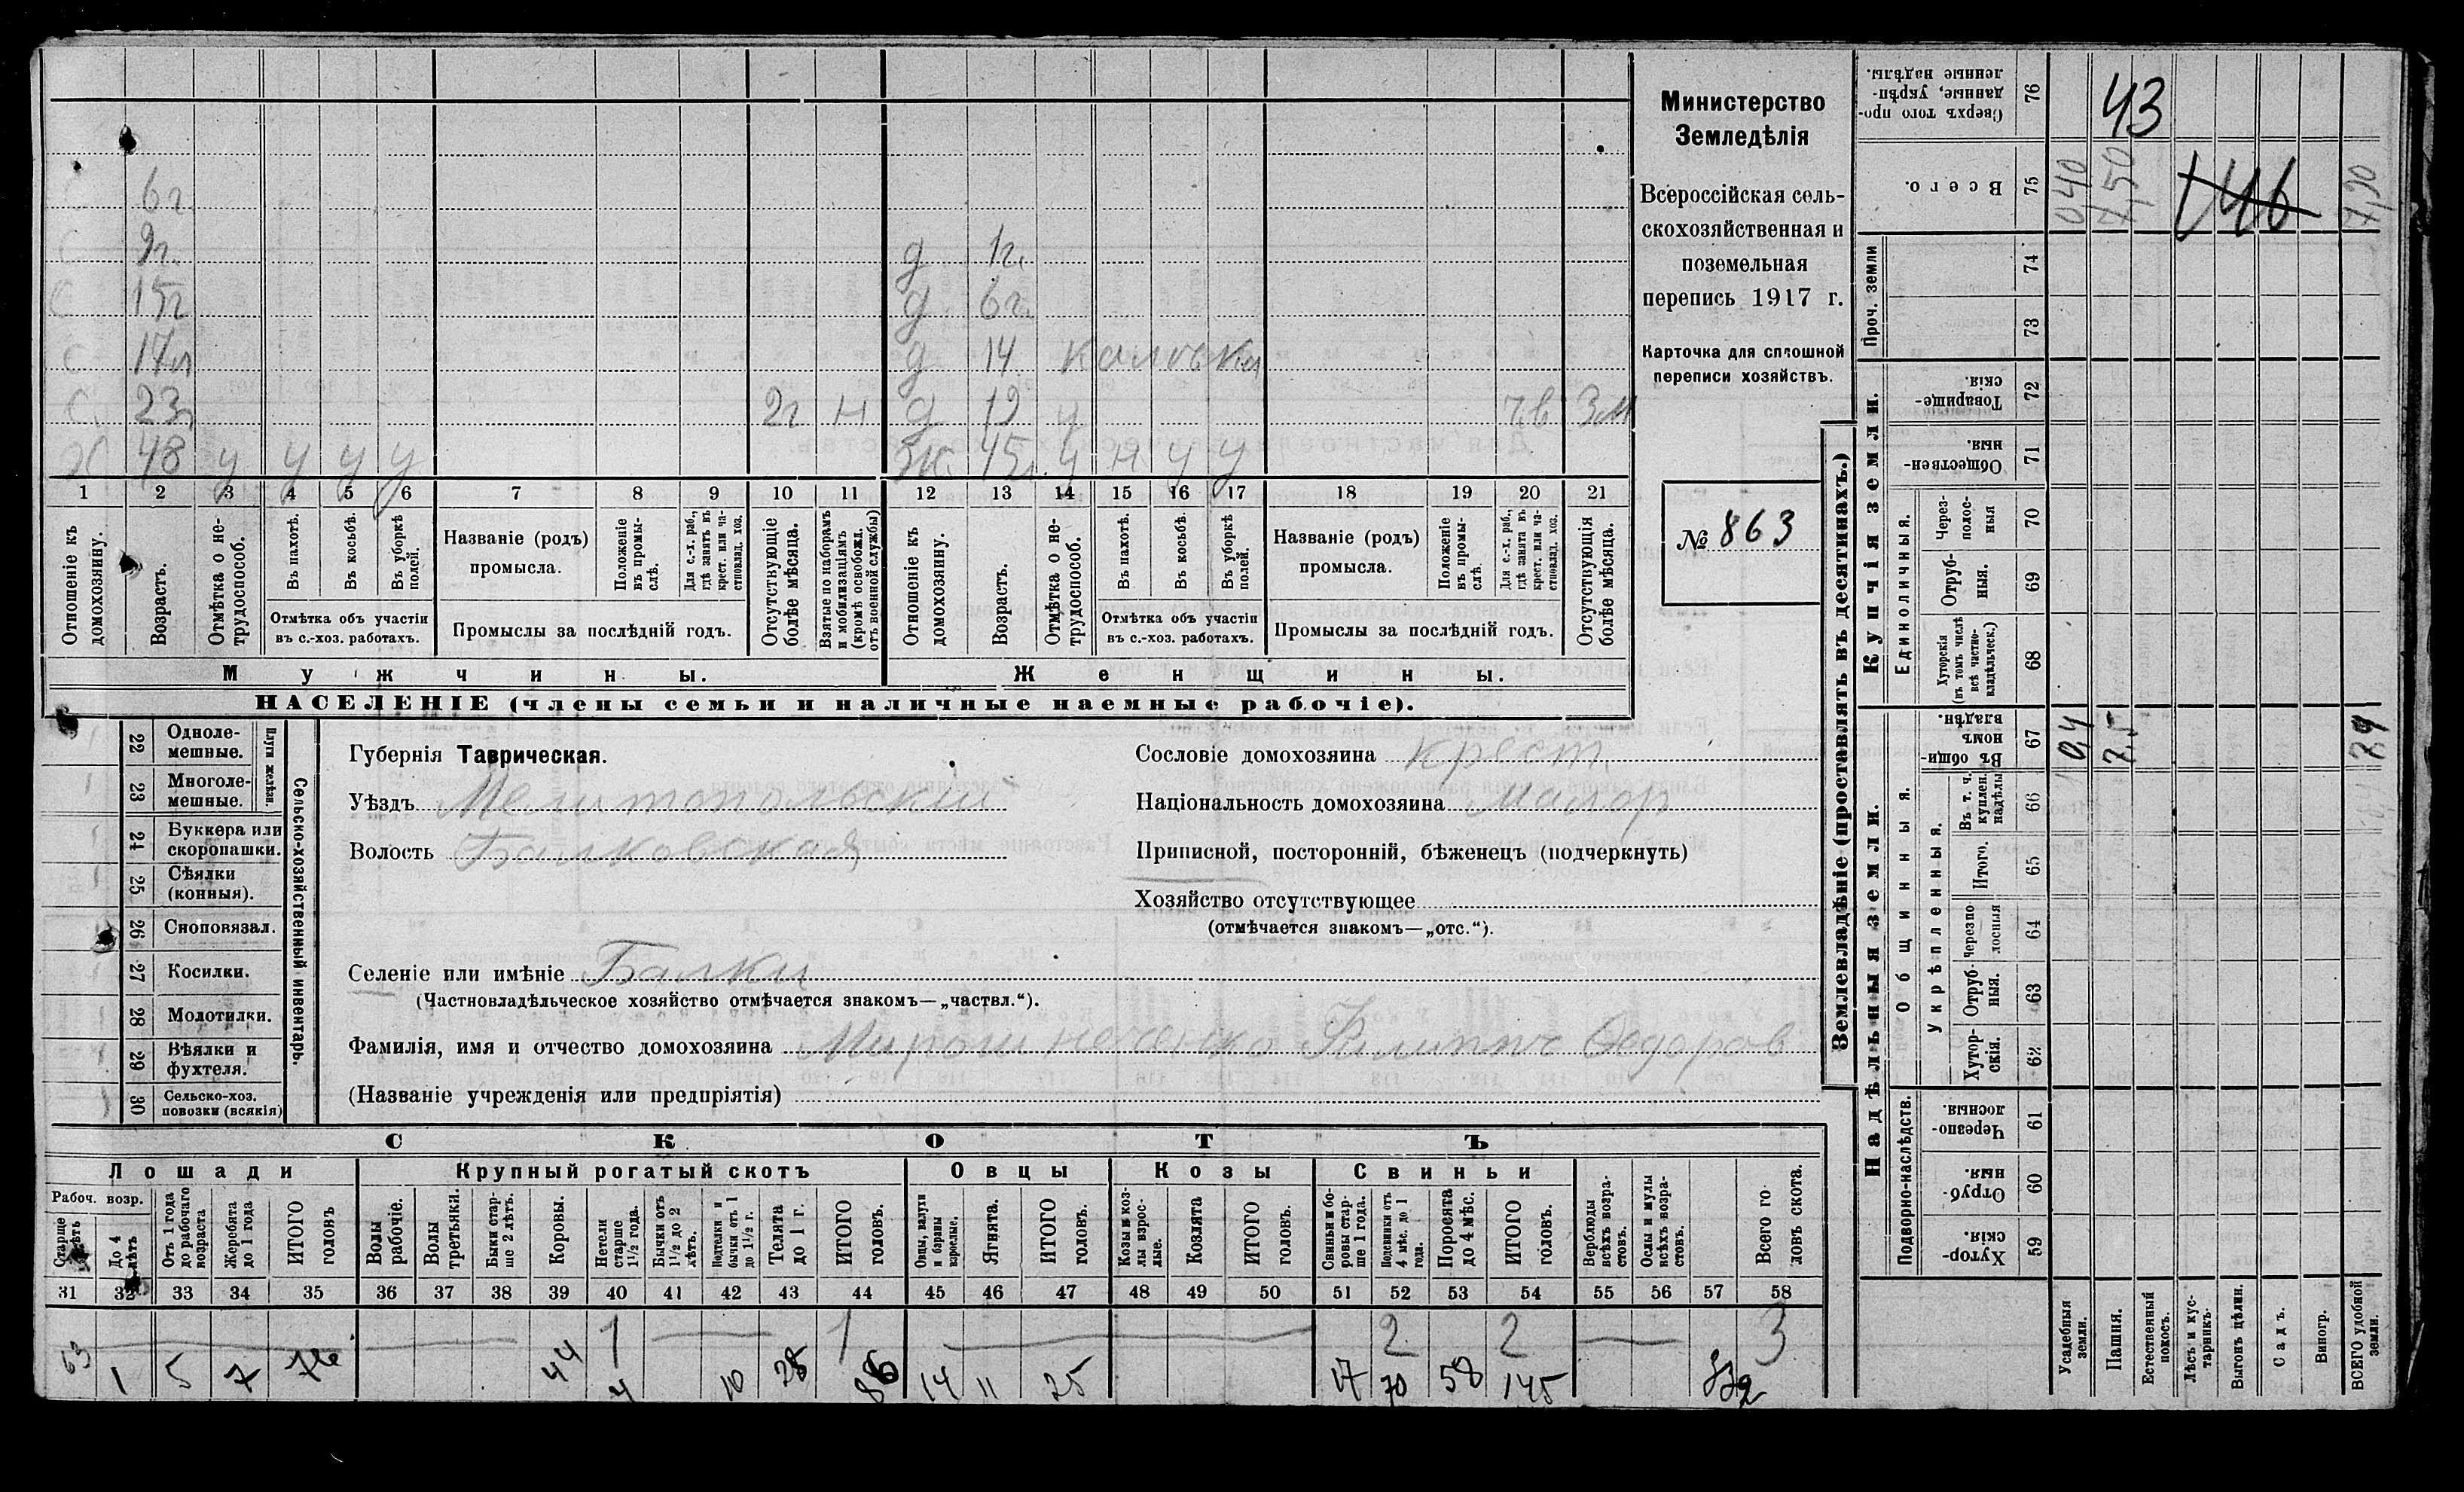 6 г.
9 г.
д 1 г.
15 г
д 6 г.
С 17 л
д 14
С. 23 л
2 г н д 19 у
Х 48 у у у у Ж. 45 л. у н у у
1 2 3 4 5 6 7 8 9 10 11 12 13 14 15 16 17 18 19 20 21
Отношеніе къ домохозяину.
Возрастъ.
Отмѣтка о не-трудоспособ.
Въ пахотѣ.
Въ косьбѣ.
Въ уборкѣ полей.
Отмѣтка объ участіи въ с.-хоз. работахъ.
Названіе (родъ) промысла.
Положеніе въ промы-слѣ.
Для с.-х. раб., гдѣ занятъ въ крест. или ча-стновлад. хоз.
Промыслы за послѣдній годъ.
Отсутствующіе болѣе мѣсяца.
Взятые по наборамъ и мобилизаціямъ (кромѣ освобожд. отъ военной службы)
Отношеніе къ домохозяину.
Возрастъ.
Отмѣтка о не-трудоспособ.
Въ пахотѣ.
Въ косьбѣ.
Въ уборкѣ полей.
Отмѣтка объ участіи въ с.-хоз. работахъ.
Названіе (родъ) промысла.
Положеніе въ промы-слѣ.
Для с.-х. раб., гдѣ занята въ крест. или ча-стновлад. хоз.
Промыслы за послѣдній годъ.
Отсутствующія болѣе мѣсяца.
Мужчины. Женщины.
НАСЕЛЕНІЕ (члены семьи и наличные наемные рабочіе).
Министерство
Земледѣлія
Всероссійская сель-
скохозяйственная и
поземельная
перепись 1917 г.
Карточка для сплошной
переписи хозяйствъ.
№ 863
22 Одноле-мешные.
23 Многоле-мешные.
Плуги желѣзн.
24 Буккера или скоропашки.
25 Сѣялки (конныя).
26 Сноповязал.
27 Косилки.
28 Молотилки.
29 Вѣялки и фухтеля.
30 Сельско-хоз. повозки (всякія)
Сельско-хозяйственный инвентарь.
Губернія Таврическая.
Уѣздъ Мелитопольскій
Волость Балковская
Селеніе или имѣніе Балки
(Частновладѣльческое хозяйство отмѣчается знакомъ—„частвл.“).
Фамилія, имя и отчество домохозяина Мирошниченко Филиппъ Федоров
(Названіе учрежденія или предпріятія)
Сословіе домохозяина крест.
Національность домохозяина малор
Приписной, посторонній, бѣженецъ (подчеркнуть)
Хозяйство отсутствующее
(отмѣчается знакомъ—„отс.“).
СКОТЪ
Лошади Крупный рогатый скотъ Овцы Козы Свиньи
Рабоч. возр.
Старше лѣтъ
До 4 лѣтъ
Отъ 1 года до рабочаго возраста
Жеребята до 1 года
ИТОГО головъ
Волы рабочіе.
Волы третьяки.
Быки стар-ше 2 лѣтъ.
Коровы.
Нетели старше 1½ года.
Бычки отъ 1½ до 2 лѣтъ.
Подтелки и бычки отъ 1 до 1½ г.
Телята до 1 г.
ИТОГО головъ.
Овцы, валухи и бараны взрослые.
Ягнята.
ИТОГО головъ.
Козы и коз-лы взрос-лые.
Козлята
ИТОГО головъ.
Свиньи и бо-ровы стар-ше 1 года.
Подсвинки отъ 4 мѣс. до 1 года.
Поросята до 4 мѣс.
ИТОГО головъ.
Верблюды всѣхъ возра-стовъ.
Ослы и мулы всѣхъ возра-стовъ.
Всего го ловъ скота.
31 32 33 34 35 36 37 38 39 40 41 42 43 44 45 46 47 48 49 50 51 52 53 54 55 56 57 58
1 1 2 2 3
63 1 5 7 44 4 10 28 86 14 11 25 17 70 58 145
Землевладѣніе (проставлять въ десятинахъ.)
Надѣльныя земли. Купчія земли. Проч. земли
Подворно-наслѣдств.
Общинныя.
Укрѣпленныя.
Единоличныя.
76 Сверхъ того про-данные, укрѣп-ленные надѣлы.
43
75 Всего. 0,40 7,50 7,90
74
73
72 Товарище-скія.
71 Обществен-ныя.
70 Через-полос-ныя
69 Отруб-ныя.
68 Хуторскія (въ томъ числѣ всѣ частно-владѣльческ.)
67 Въ общи-номъ владѣн. 0,4 7,5 7,9
66 Въ т. ч. куплен. надѣлы
65 Итого.
64 Черезпо лосныя
63 Отруб-ныя.
62 Хутор-скія.
61 Черезпо-лосныя.
60 Отруб-ныя.
59 Хутор-скія.
Усадебныя земли.
Пашня.
Естественный покосъ.
Лѣсъ и кус-тарникъ.
Выгонъ цѣлин.
Садъ.
Виногр.
ВСЕГО удобной земли.